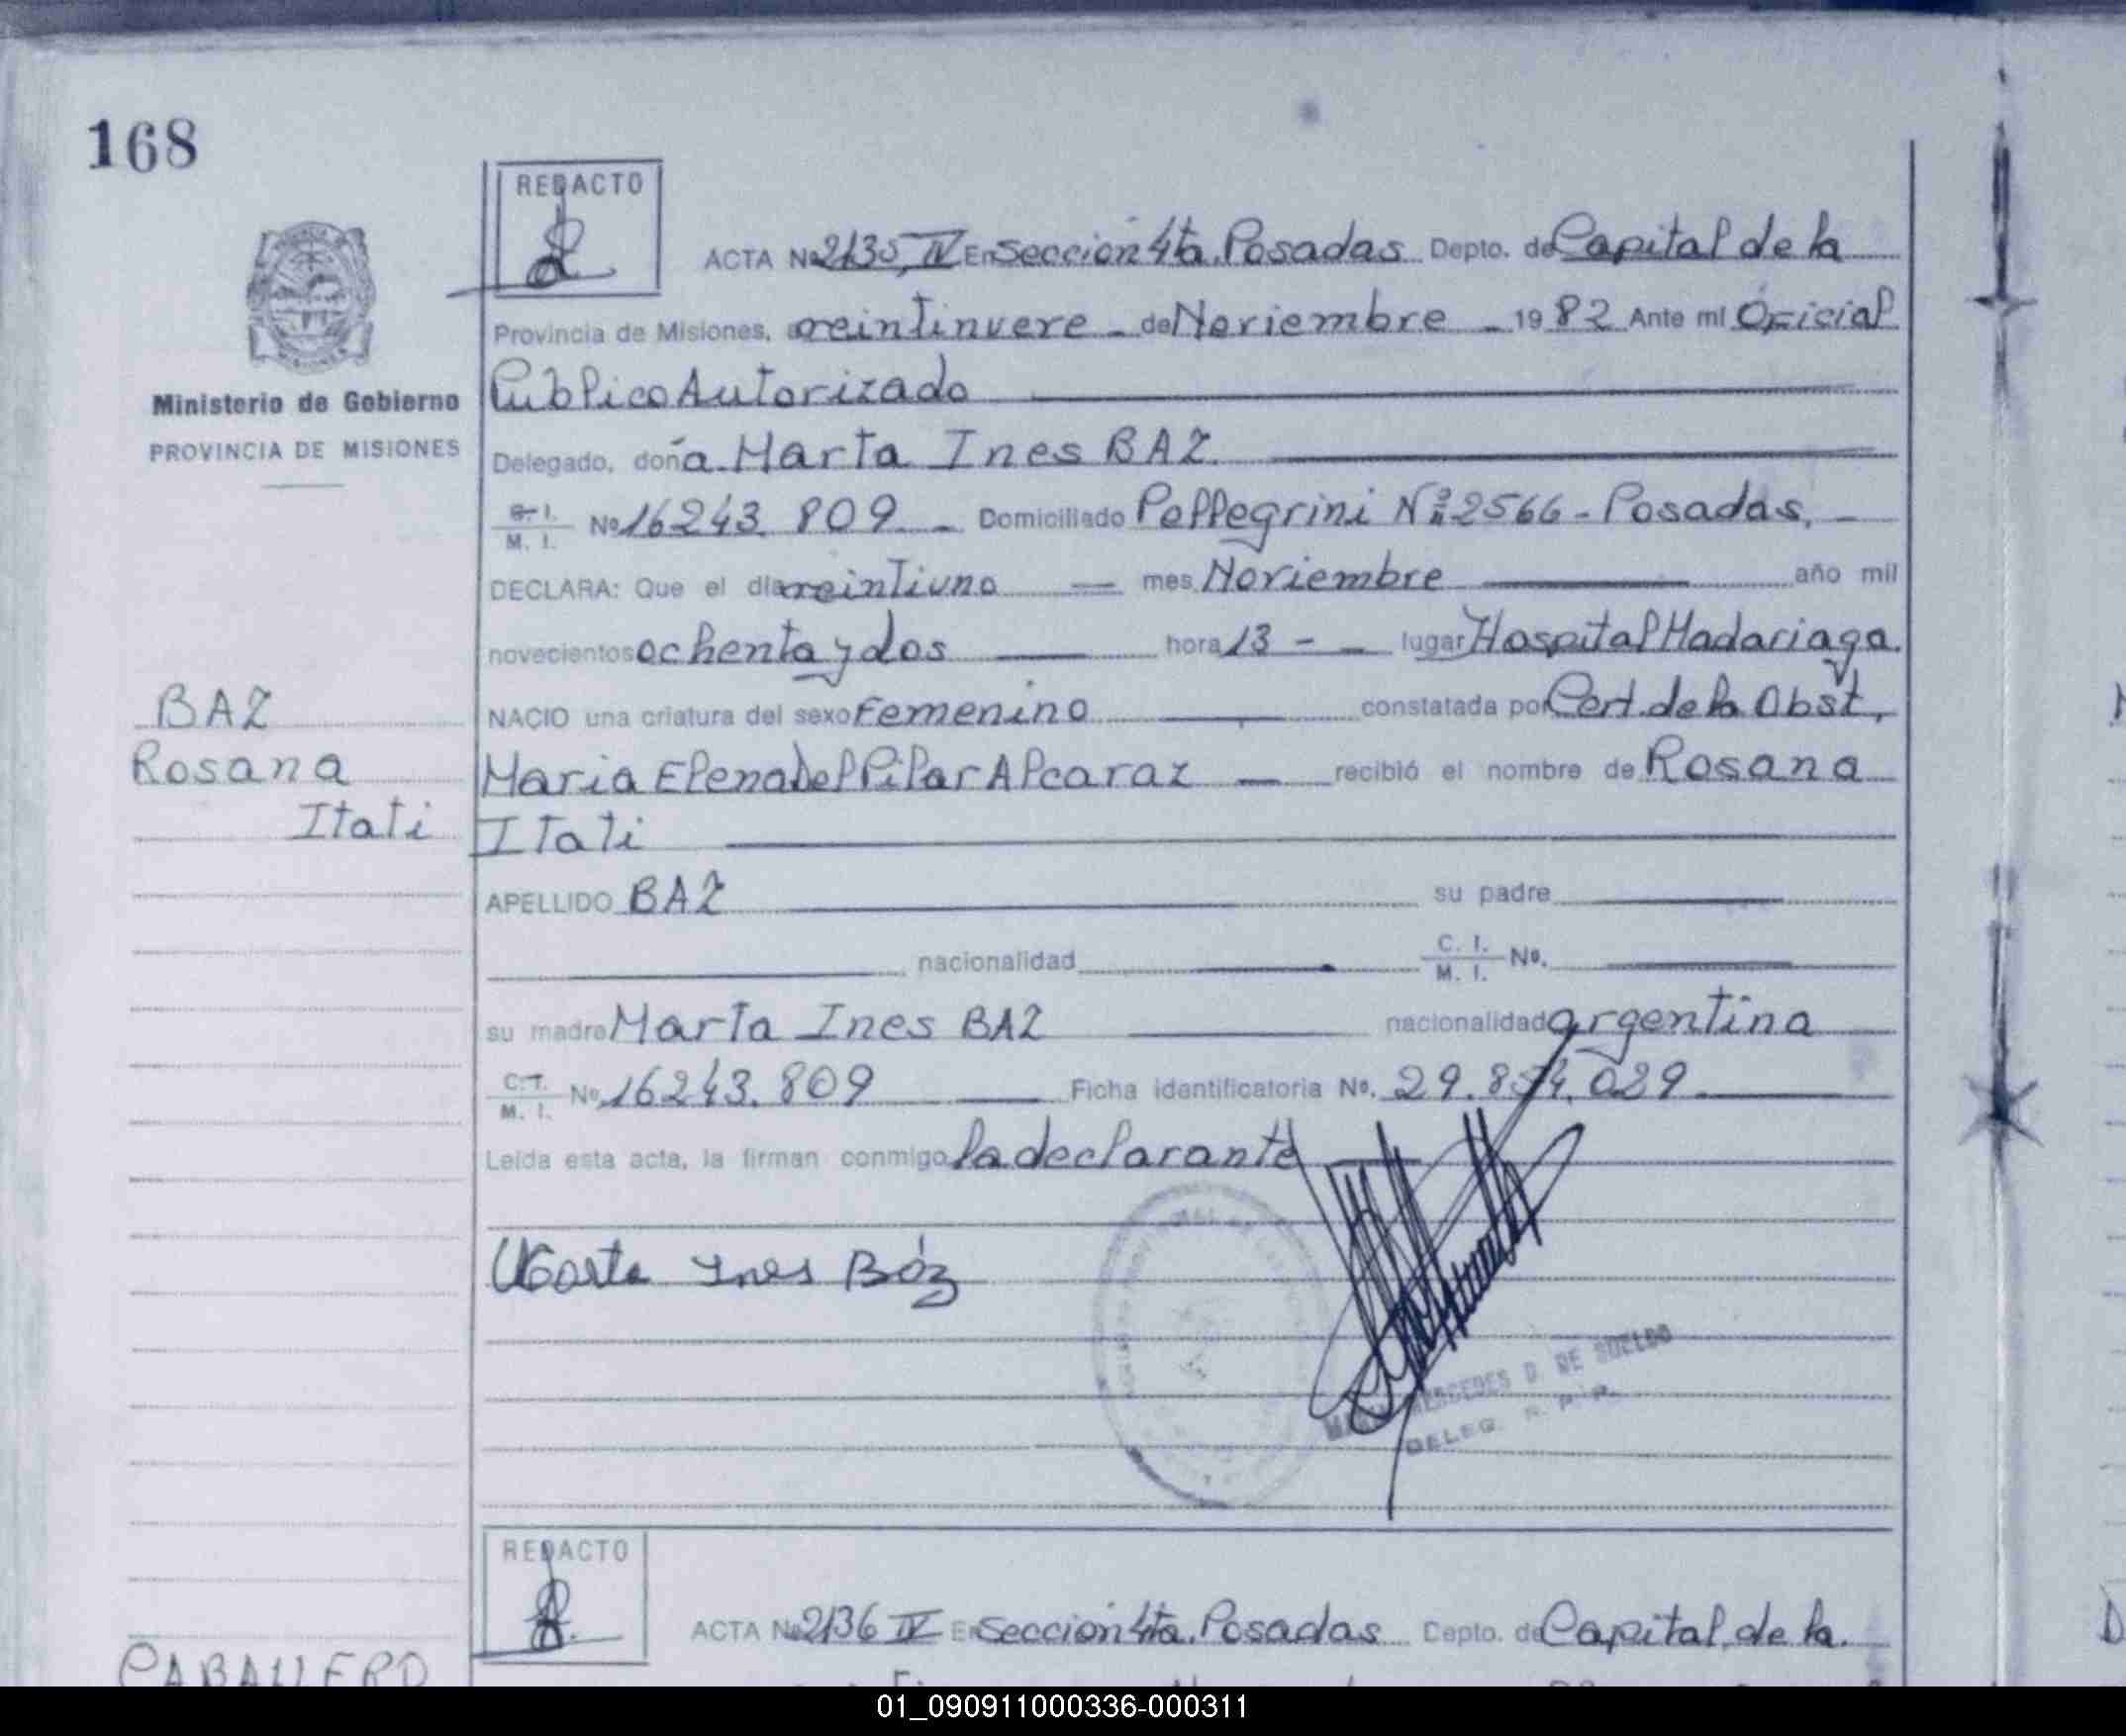 168
REDACTO
ACTA Nº 2135, IV En Sección 4ta. Posadas Depto. de Capital de la
Provincia de Misiones, a veintinueve - de Noviembre - 1982 Ante mí Oficial
Ministerio de Gobierno
Público Autorizado
PROVINCIA DE MISIONES
Delegado, doña Marta Ines BAZ
C. I. M. I. Nº 16243.809 - Domiciliado Pellegrini Nº 2566 - Posadas, -
DECLARA: Que el día veintiuno — mes Noviembre año mil
novecientos ochenta y dos hora 13 - - lugar Hospital Madariaga.
BAZ
NACIO una criatura del sexo Femenino constatada por Cert. de la Obst,
Rosana
Maria Elena Del Pilar Alcaraz — recibió el nombre de Rosana
Itati
Itati
APELLIDO BAZ su padre
nacionalidad C. I. M. I. Nº.
su madre Marta Ines BAZ nacionalidad argentina
C. I. M. I. Nº 16243.809 Ficha identificatoria Nº. 29.854.029
Leída esta acta, la firman conmigo la declarante
Marta Ines Báz
MERCEDES D. DE SUELDO
DELEG. R. P. P.
REDACTO
ACTA Nº 2136 IV En Sección 4ta. Posadas Depto. de Capital, de la.
CABALLERO
01_090911000336-000311